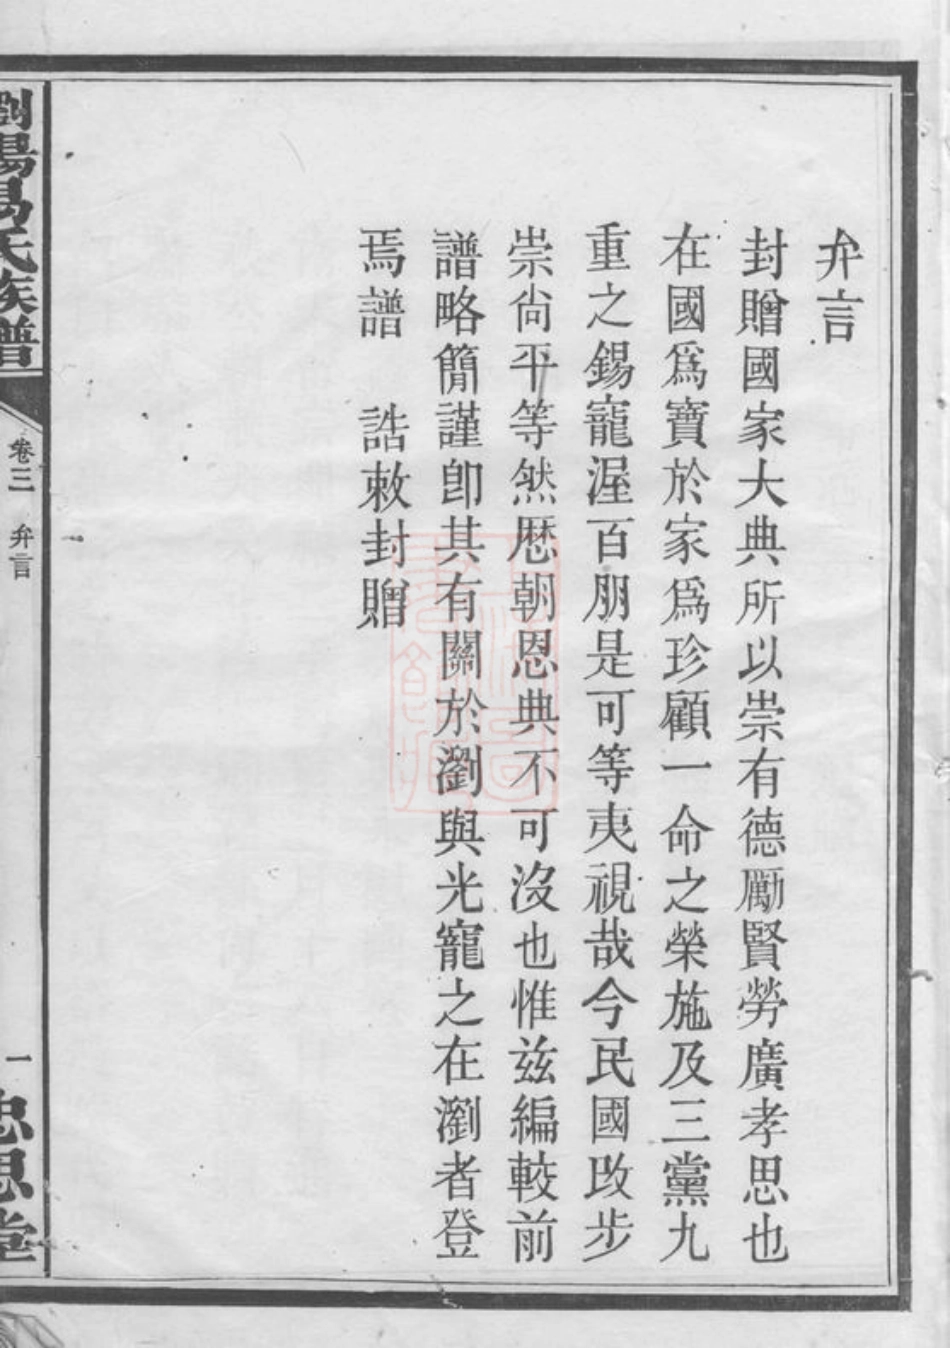 弁言
封贈國家大典所以崇有德勵賢勞廣孝思也
在國爲寶於家爲珍顧一命之榮施及三黨九
重之錫寵渥百朋是可等夷視哉今民國改步
崇尙平等然歷朝恩典不可沒也惟兹編較前
譜略簡謹卽其有關於瀏與光寵之在瀏者登
焉譜 誥敕封贈
瀏陽易氏族譜
卷三 弁言
一
忠恕堂